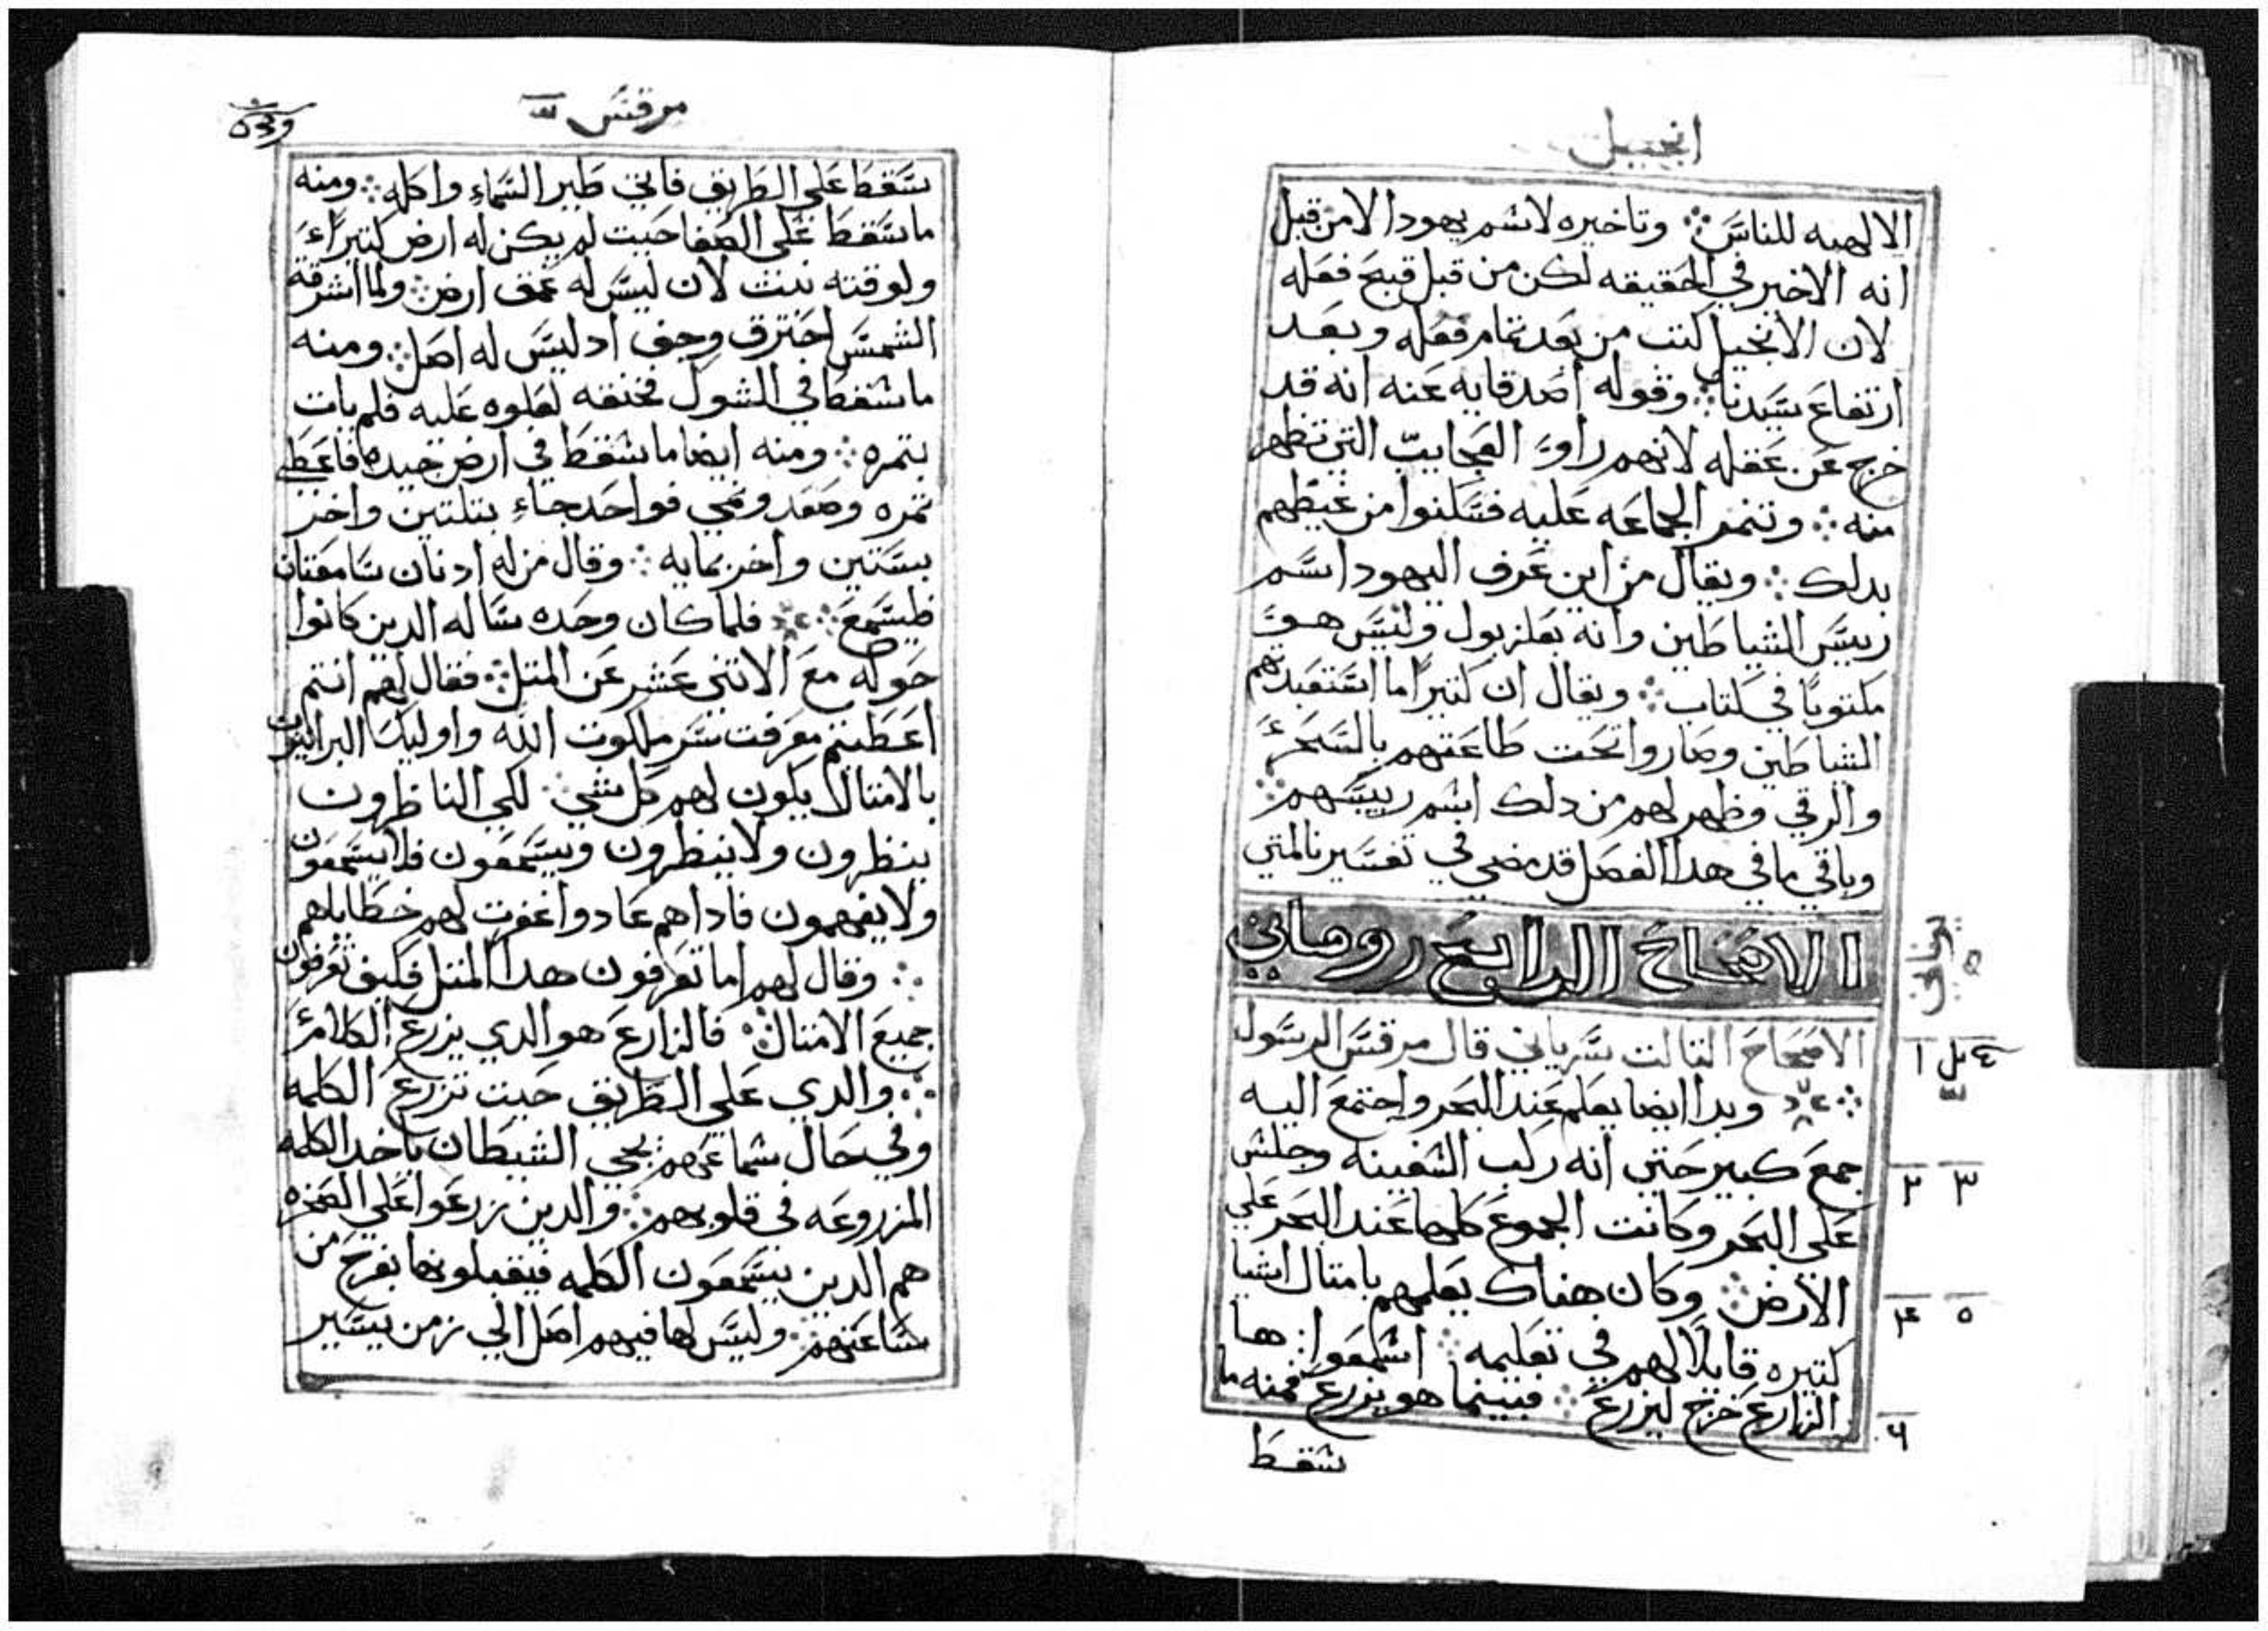 انجيل
الالهيه للناس ❊ وتاخيره لاسم يهودا لا من قبل
انه الاخير في الحقيقه لكن من قبل قبيح فعله
لان الانجيل كتب من بعد تمام فعله وبعد
ارتفاع سيدنا ❊ وقوله اصدقايه عنه انه قد
خرج عن عقله لانهم راوا العجايب التي تظهر
منه ❊ وتنمر الجماعه عليه فسكنوا من غيظهم
بدلك ❊ ويقال من اين عرف اليهود اسم
رييس الشياطين وانه بعلزبول وليس هو
مكتوبًا في كتاب ❊ ويقال ان كتيرًا ما استعبدتهم
الشياطين وصاروا تحت طاعتهم بالسحر
والرقي وظهر لهم من دلك اسم رييسهم ❊
وباقي ما في هدا الفصل قد مضي في تفسيرنا لمتي
الاصحاح الرابع روماني
يوناني
الاصحاح التالت سرياني قال مرقس الرسول
❊ وبدا ايضا يعلم عند البحر واجتمع اليه
جمع كبير حتي انه ركب السفينه وجلس
علي البحر وكانت الجموع كلها عند البحر علي
الارض ❊ وكان هناك يعلمهم بامتال اشيا
كتيره قايلًا لهم في تعليمه ❊ اسمعوا ❊ ها
الزارع خرج ليزرع ❊ فبينما هو يزرع فمنه ما
سقط
مرقس
سقط علي الطريق فاتي طير السماء واكله ❊ ومنه
ما سقط علي الصفا حيت لم يكن له ارض كتيرًا
ولوقته نبت لان ليس له عمق ارض ❊ ولما اشرقة
الشمس احترق وجف اد ليس له اصل ❊ ومنه
ما سقط في الشوك فخنقه لعلوه عليه فلم يات
بتمره ❊ ومنه ايضا ما سقط في ارض جيده فاعطي
تمره وصعد ونمي فواحد جاء بتلتين واخر
بستين واخر بمايه ❊ وقال من له ادنان سامعتان
فليسمع ❊ فلما كان وحده ساله الدين كانوا
حوله مع الاتني عشر عن المتل ❊ فقال لهم انتم
اعطيتم معرفت سر ملكوت الله واوليك البرانيون
بالامتال يكون لهم كل شي ❊ لكي الناظرون
ينظرون ولا ينظرون ويسمعون فلا يسمعون
ولا يفهمون فاداهم عادوا غفرت لهم خطاياهم
❊ وقال لهم اما تعرفون هدا المتل فكيف تعرفون
جميع الامتال ❊ فالزارع هو الدي يزرع الكلام
❊ والدي علي الطريق حيت تزرع الكلمه
وفي حال سماعهم يجي الشيطان ياخد الكلمه
المزروعه في قلوبهم ❊ والدين زرعوا علي الصخره
هم الدين يسمعون الكلمه فيقبلونها بفرح من
ساعتهم ❊ وليس لها فيهم اصل الي زمن يسير